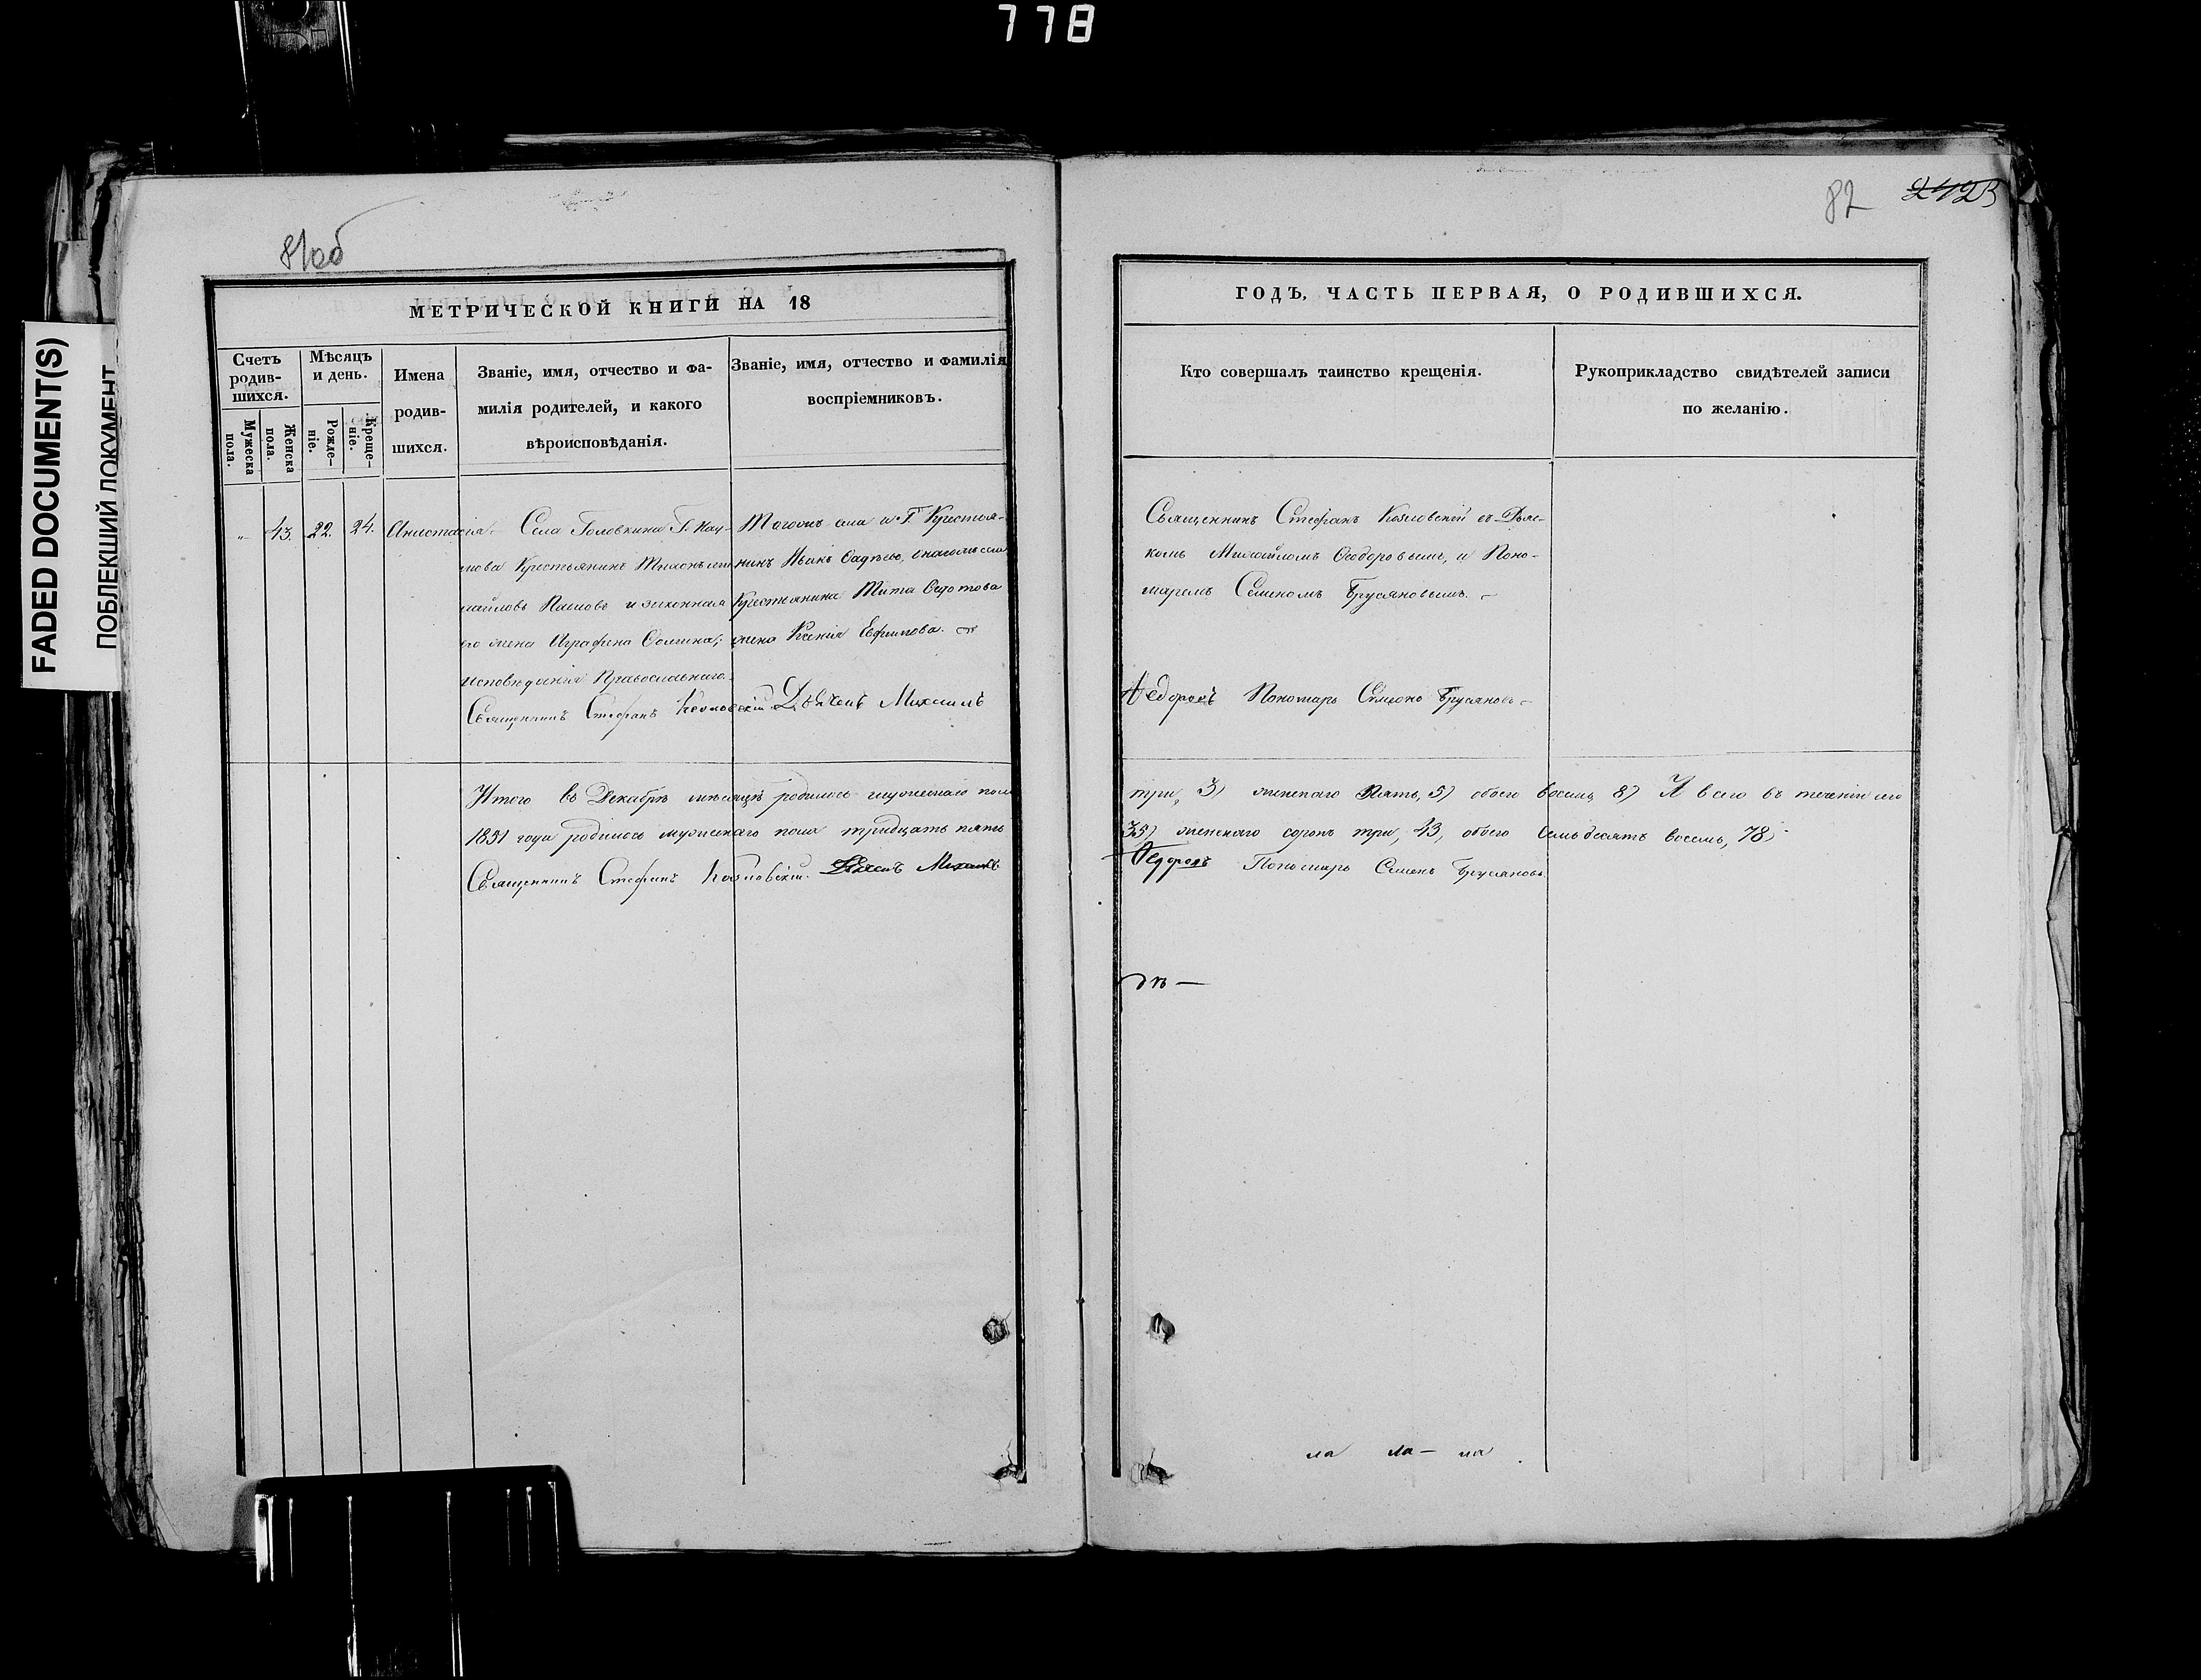 778
FADED DOCUMENT(S)
ПОБЛЕКШИЙ ДОКУМЕНТ
81об
МЕТРИЧЕСКОЙ КНИГИ НА 18
Счетъ родив-шихся.
Мужеска пола.
Женска пола.
Мѣсяцъ и день.
Рожде-ніе.
Креще-ніе.
Имена родив-шихся.
Званіе, имя, отчество и фа-
милія родителей, и какого
вѣроисповѣданія.
Званіе, имя, отчество и фамилія
воспріемниковъ.
43. 22. 24. Анастасія.
Села Головкина Г.
Крестьянинъ Тихонъ
и законная
его жена Аграфена
исповѣданія Православнаго.
Тогожъ села и Г. Крестья-
нинъ Иванъ
Крестьянина Тита Федотова
жена Ксенія Ефимова.
Священникъ Стефанъ Козловскій Дьяконъ Михаилъ
Итого въ Декабрѣ мѣсяцѣ родилось мужескаго пола
1851 года родилось мужескаго пола тридцать пять
Священникъ Стефанъ Козловскій. Дьяконъ Михаилъ
82 2423
ГОДЪ, ЧАСТЬ ПЕРВАЯ, О РОДИВШИХСЯ.
Кто совершалъ таинство крещенія.
Рукоприкладство свидѣтелей записи
по желанію.
Священникъ Стефанъ Козловскій съ Дьяко-
комъ Михаиломъ Феодоровымъ, и Поно-
маремъ Семеномъ Брусяновымъ.
Федоровъ Пономарь Симеонъ Брусяновъ
три, 3) женскаго Пять, 5) обоего восемь, 8) А всего въ теченіи его
35) женскаго сорокъ три, 43, обоего семьдесятъ восемь, 78,
Федоровъ Пономарь Семенъ Брусяновъ.
ла ла — ла